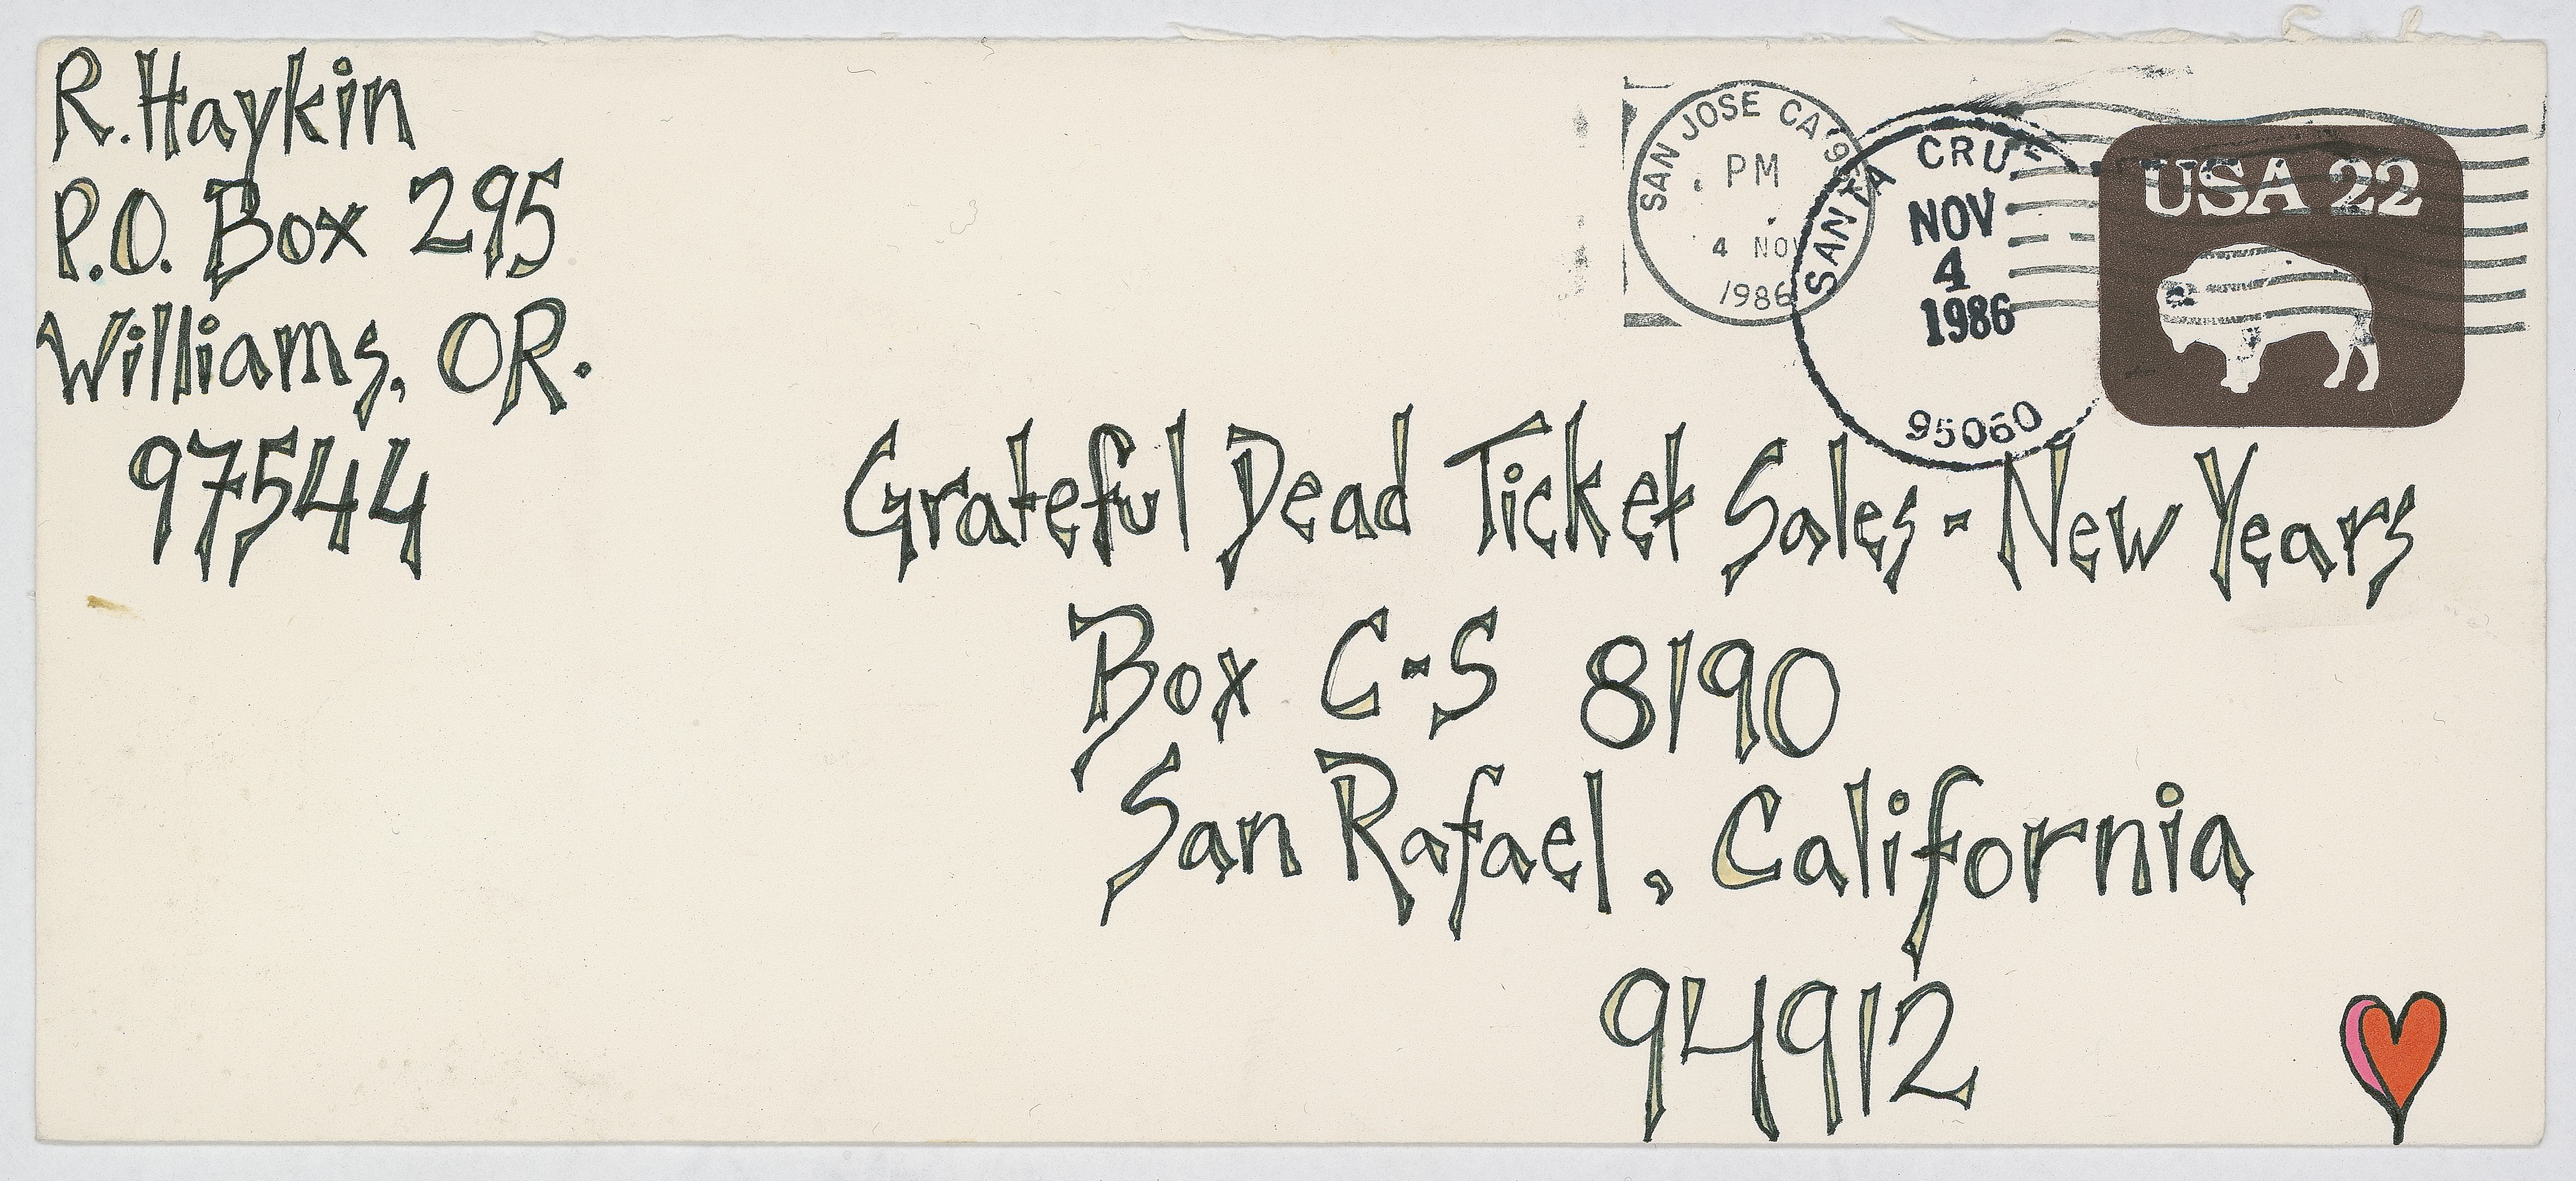 R. Haykin
P.O. Box 295
Williams, OR.
97544
SAN JOSE CA
PM
4 NOV
1986
SANTA
NOV
4
1986
95060
USA 22
Grateful Dead Ticket Sales - New Years
Box C-S 8190
San Rafael, California
94912